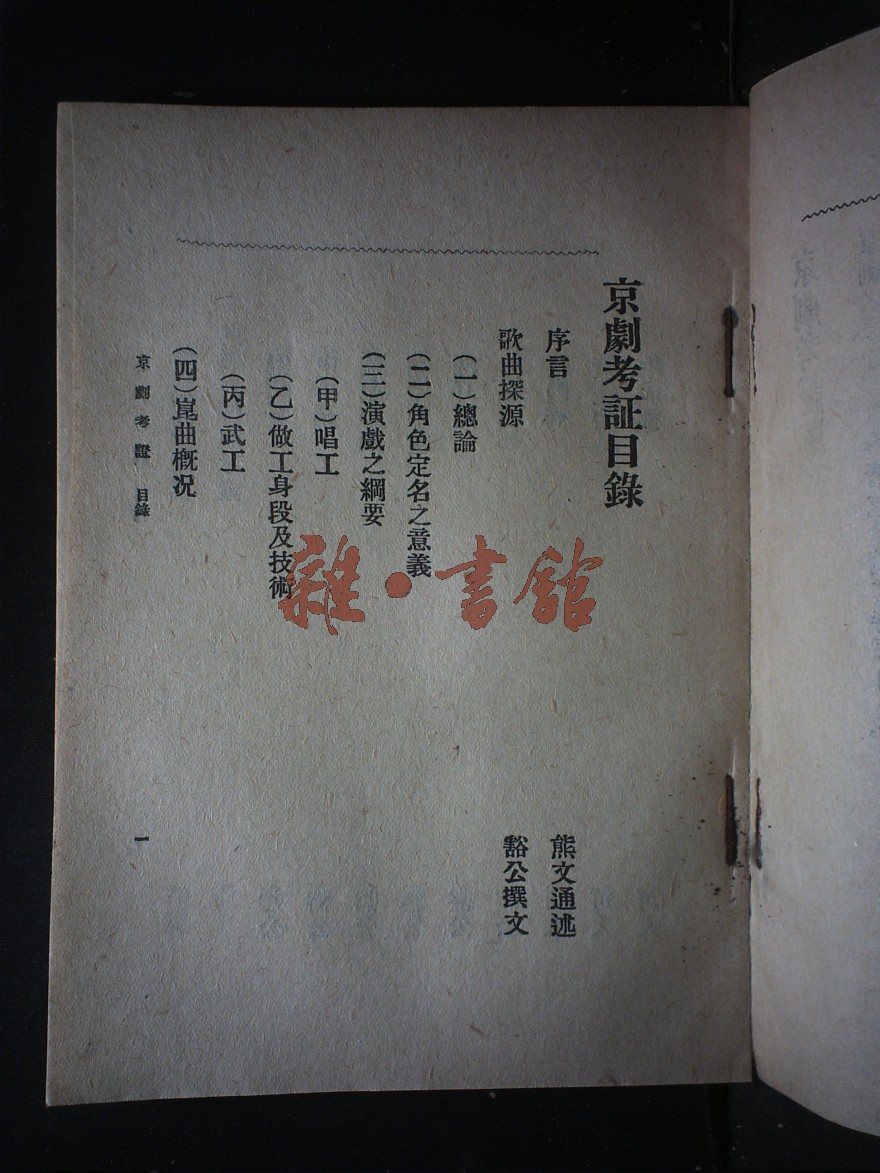 京劇考証目錄
序言 熊文通述
歌曲探源 豁公撰文
(一)總論
(二)角色定名之意義
(三)演戲之綱要
(甲)唱工
(乙)做工身段及技術
(丙)武工
(四)崑曲槪況
京劇考證 目錄 一
雜·書館